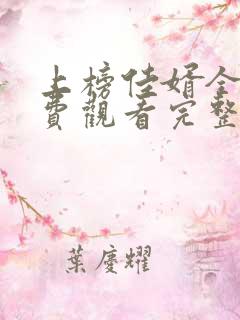 上榜佳婿全
費觀看完整
葉慶耀